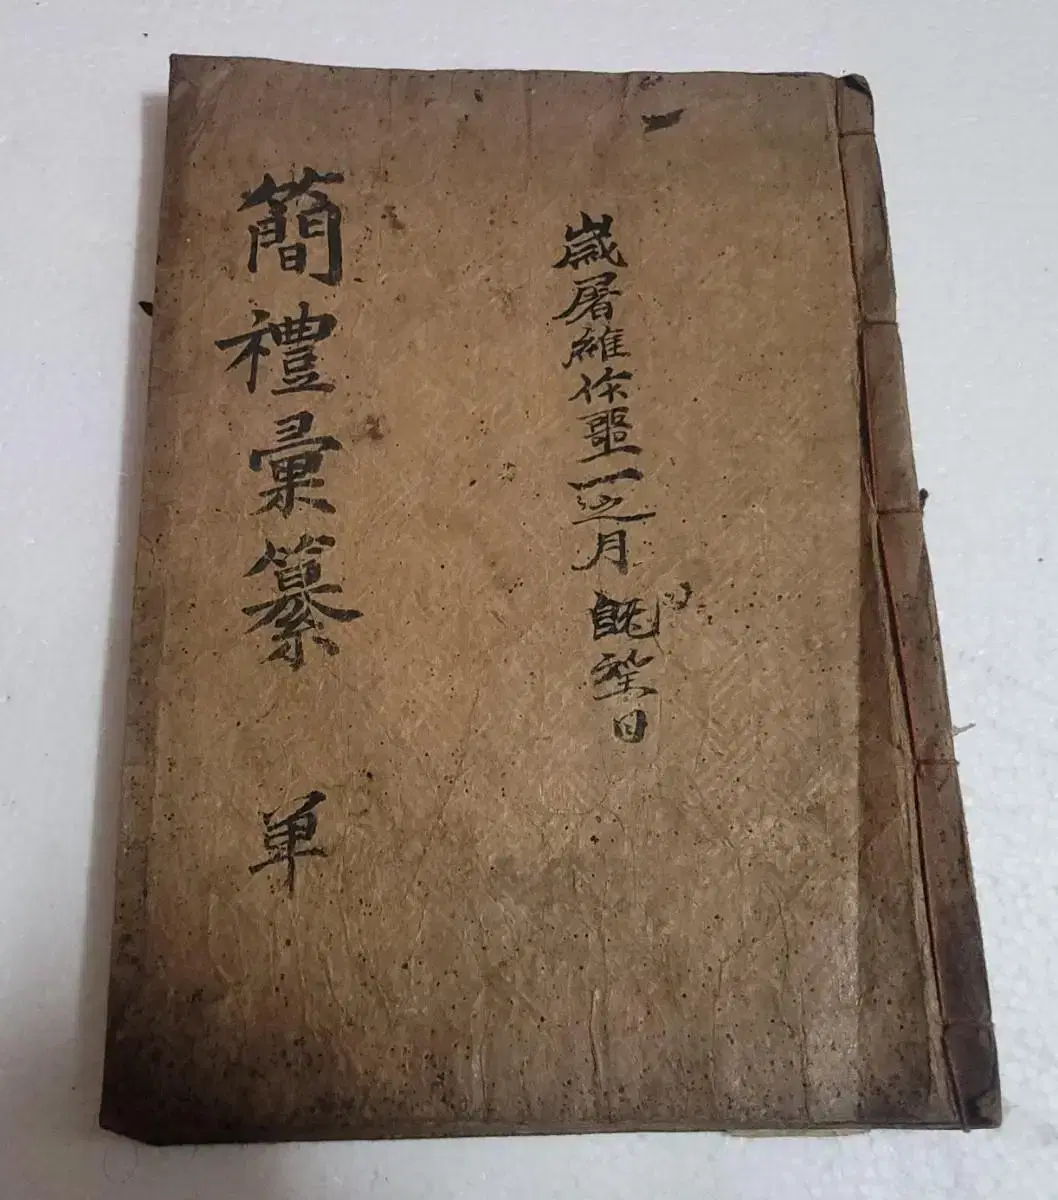 歲屠維作噩一之月既望日
簡禮彙纂 单